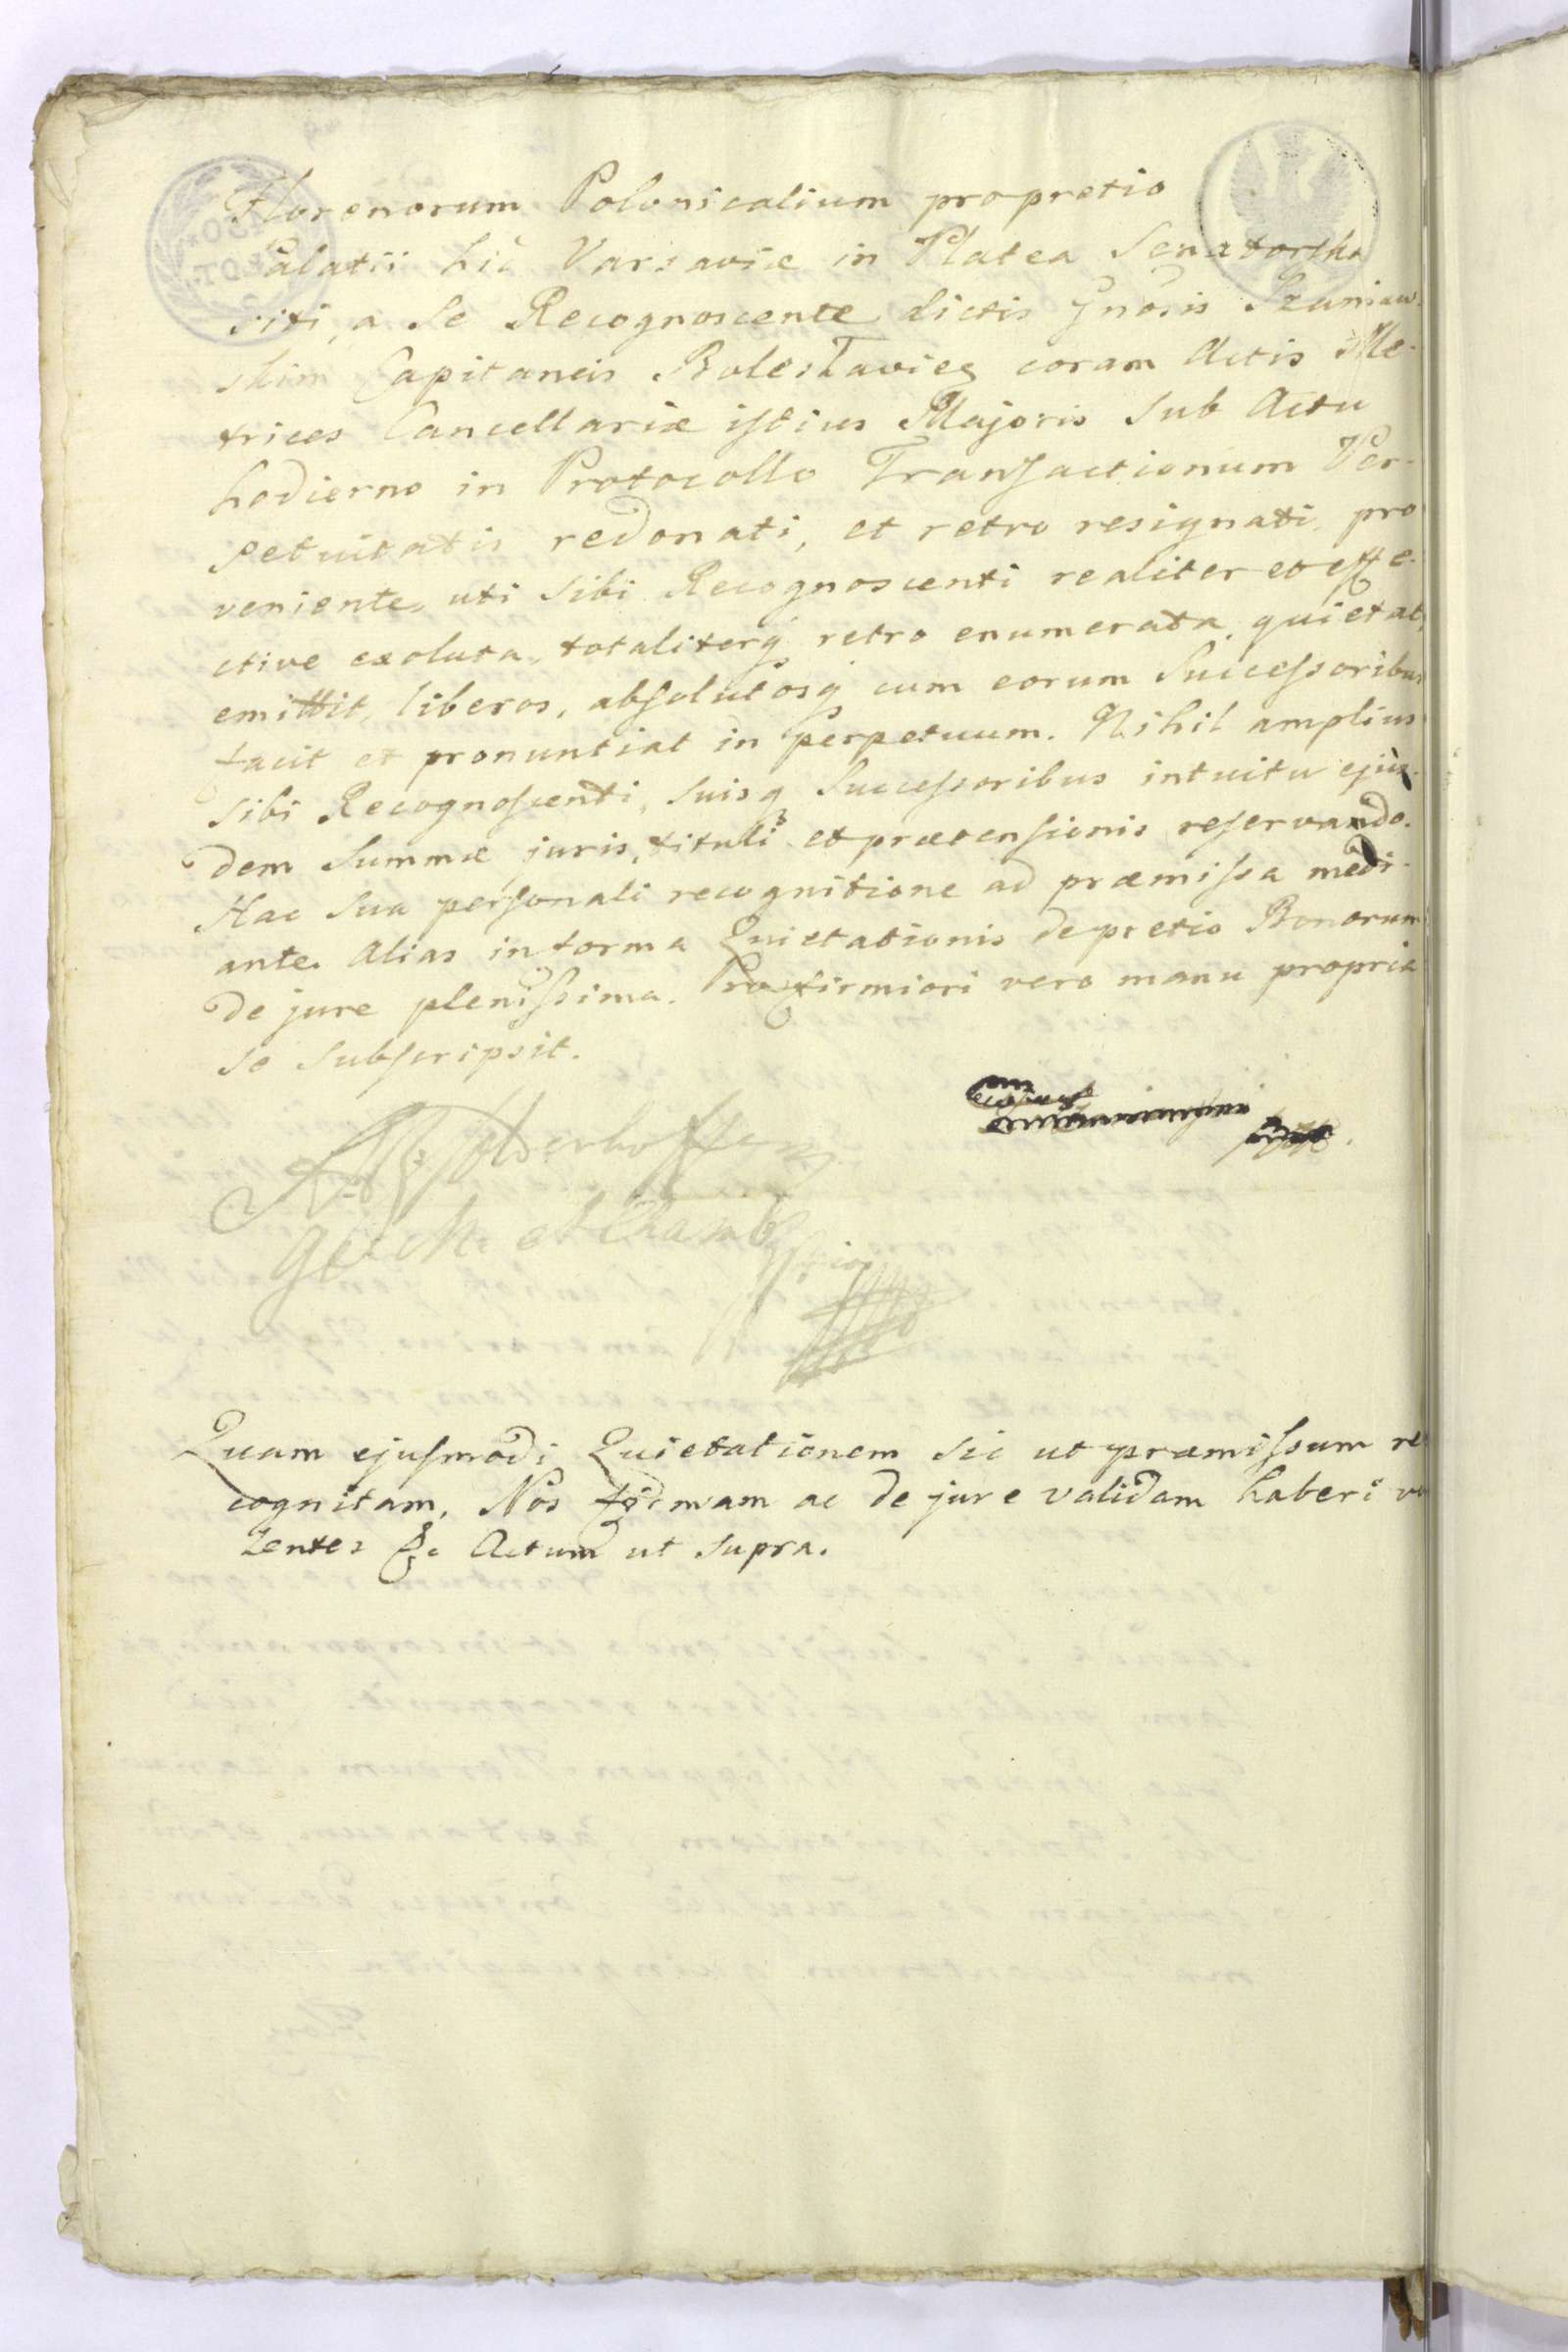 Florenorum Polonicalium pro pretio
Palatii hic Varsaviæ in Platea Senatorska
siti, a se Recognoscente dictis Gnosis Szaniaw-
skim Capitaneis Boleslavieñ coram Actis Me-
trices Cancellariæ istius Majoris sub Actu
hodierno in Protocollo Transactionum Per-
petuitatis redonati, et retro resignati, pro
veniente, uti sibi Recognoscenti realiter et effe-
ctive exoluta, totaliterq retro enumerata, quietat,
emittit, liberos, absolutosq cum eorum Successoribus
facit et pronuntiat in perpetuum. Nihil amplius
sibi Recognoscenti, suisq Successoribus intuitu ejus-
dem Summæ juris, tituli et prætensionis reservando.
Hac sua personali recognitione ad præmissa medi-
ante. Alias in forma Quietationis de pretio Bonorum
de jure plenissima. Pro firmiori vero manu propria
se subscripsit.
Quam ejusmodi Quietationem sic ut præmissum re
cognitam, Nos firmam ac de jure validam haberi vo
lentes &c Actum ut supra.